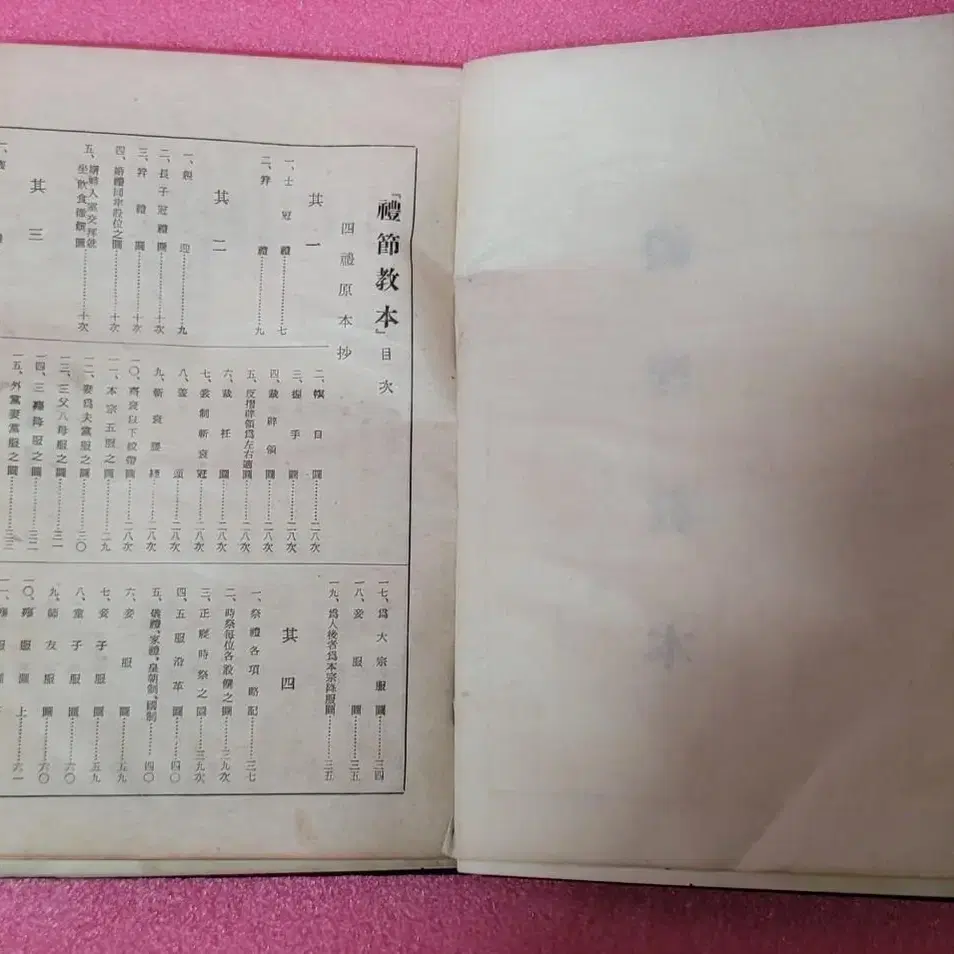 「禮節教本」目次
四禮原本抄
其一
一、士冠禮………七
二、笄禮………九
其二
一、親迎………九
二、長子冠禮圖………十次
三、笄禮圖………十次
四、婚禮同牢設位之圖………十次
五、壻婦入室交拜就
坐飲食徹饌圖………十次
其三
二、幎目圖………二八次
三、握手圖………二八次
四、裁辟領圖………二八次
五、反摺辟領爲左右適圖………二八次
六、裁衽圖………二八次
七、裳制斬衰冠………二八次
八、蓋頭………二八次
九、斬衰腰絰………二八次
一〇、齊衰以下絞帶圖………二八次
一一、本宗五服之圖………二九
一二、妻爲夫黨服之圖………三〇
一三、三父八母服之圖………三一
一四、三殤降服之圖………三二
一五、外黨妻黨服之圖………三三
一七、爲大宗服圖………三四
一八、妾服圖………三五
一九、爲人後者爲本宗降服圖………三五
其四
一、祭禮各項略記………三七
二、時祭每位各設饌之圖………三九次
三、正寢時祭之圖………三九次
四、五服沿革圖………四〇
五、儀禮、家禮、皇朝制、國制………四〇
六、妾服圖………五九
七、妾子服圖………五九
八、童子服圖………六〇
九、師友服圖………六〇
一〇、殤服圖上………六一
本